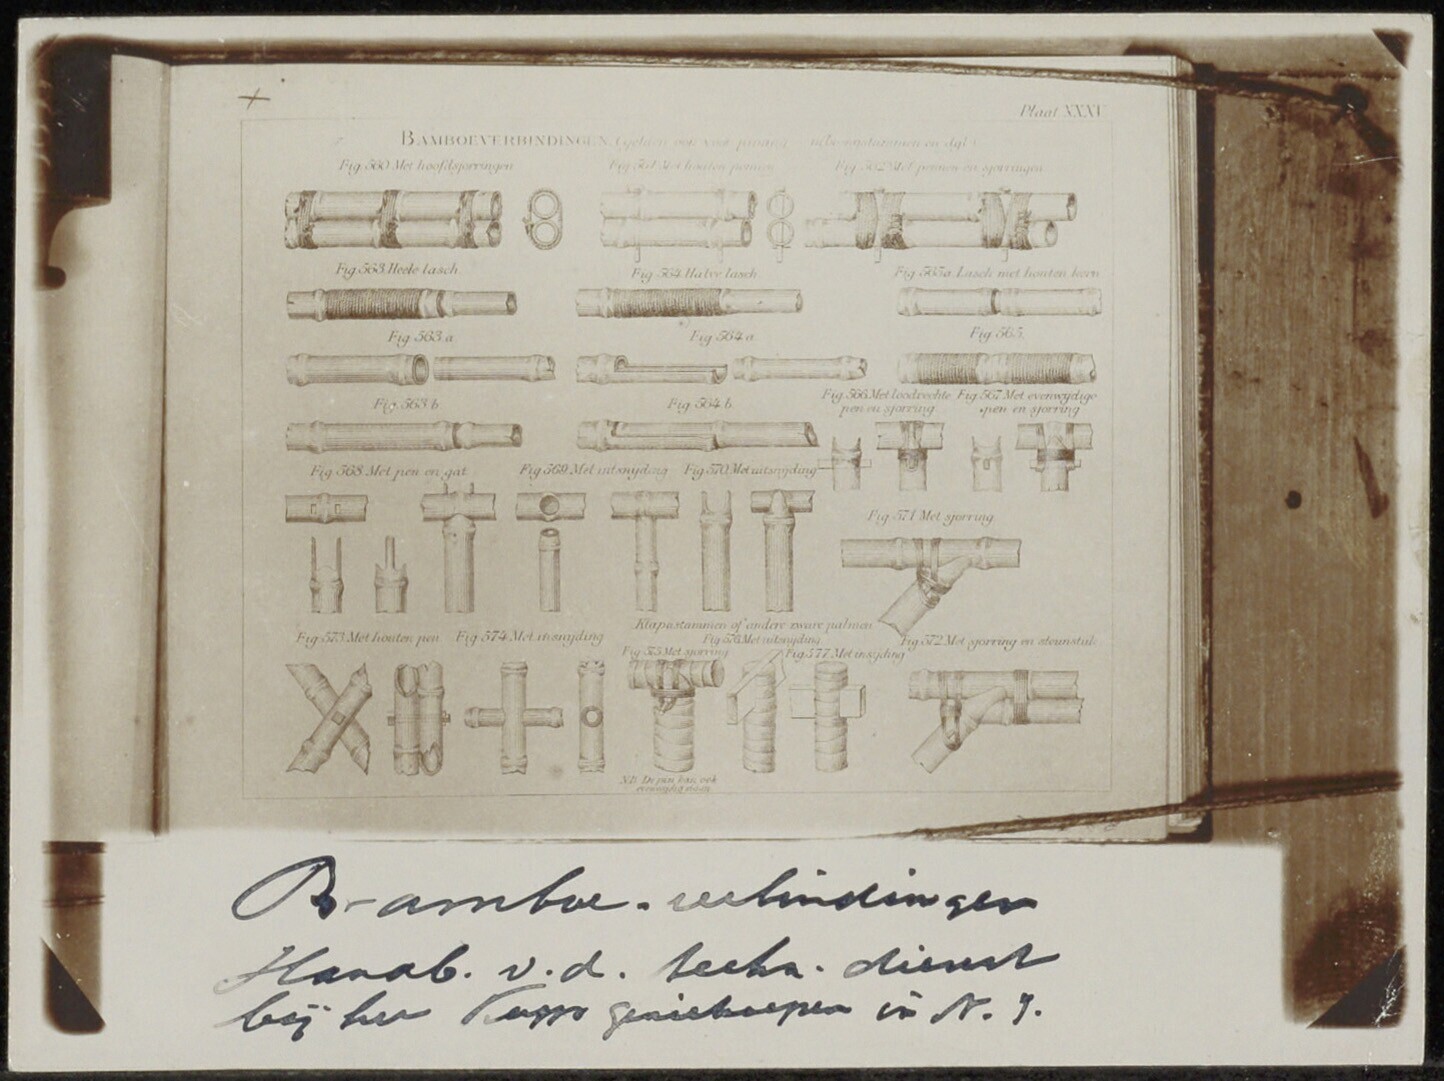 Plaat XXXV
BAMBOEVERBINDINGEN (gelden ook voor pinang
Fig. 560. Met hoofdsjorringen
Fig. 561 Met houten pennen
Fig. 562 Met pennen en sjorringen
Fig. 563. Heele lasch
Fig. 564. Halve lasch.
Fig. 565a. Lasch met houten kern
Fig. 563.a
Fig. 564a
Fig. 565.
Fig. 566. Met loodrechte pen en sjorring
Fig. 567. Met evenwydige pen en sjorring
Fig. 563.b
Fig. 564.b.
Fig. 568. Met pen en gat
Fig. 569. Met uitsnyding
Fig. 570. Met uitsnyding
Fig. 571 Met sjorring
Klapastammen of andere zware palmen
Fig. 572 Met sjorring en steunstuk
Fig. 573. Met houten pen
Fig. 574. Met insnyding
Fig. 575 Met sjorring
Fig. 576 Met uitsnyding.
Fig. 577. Met insnyding
N.B. De pen kan ook
evenwydig staan
Bamboe-verbindingen
Handb. v.d. techn. dienst
bij het Korps genietroepen in N. I.